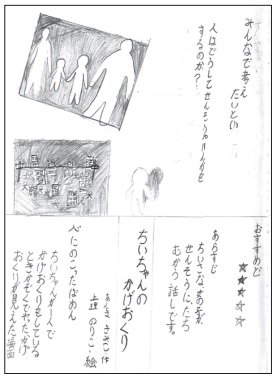 みんなで考え
たいとい
人はどうしてせんそう
するのか?
おすすめど
★★★☆☆
あらすじ
ちいさな女の子が
せんそうに
むかう話しです。
ちいちゃんの
かげおくり
あまん きみこ 作
上野 のりこ・絵
心にのこったばめん
ちいちゃんが一人で
かげおくりをしている
ときかぞくでやったかげ
おくりが見えた場面